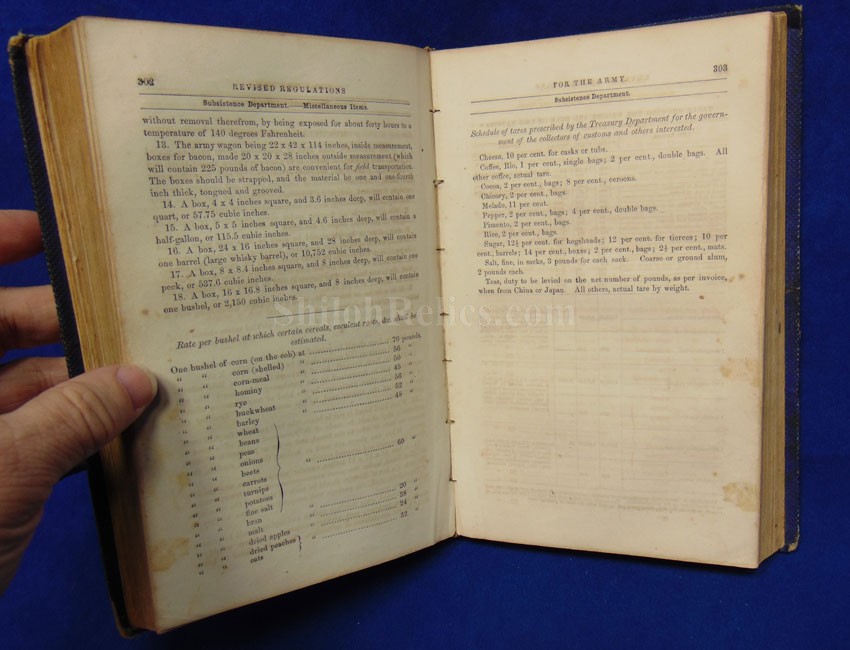 302
REVISED REGULATIONS
Subsistence Department.—Miscellaneous Items.
without removal therefrom, by being exposed for about forty hours to a
temperature of 140 degrees Fahrenheit.
13. The army wagon being 22 x 42 x 114 inches, inside measurement,
boxes for bacon, made 20 x 20 x 28 inches outside measurement (which
will contain 225 pounds of bacon) are convenient for field transportation.
The boxes should be strapped, and the material be one and one-fourth
inch thick, tongued and grooved.
14. A box, 4 x 4 inches square, and 3.6 inches deep, will contain one
quart, or 57.75 cubic inches.
15. A box, 5 x 5 inches square, and 4.6 inches deep, will contain a
half-gallon, or 115.5 cubic inches.
16. A box, 24 x 16 inches square, and 28 inches deep, will contain
one barrel (large whisky barrel), or 10,752 cubic inches.
17. A box, 8 x 8.4 inches square, and 8 inches deep, will contain one
peck, or 537.6 cubic inches.
18. A box, 16 x 16.8 inches square, and 8 inches deep, will contain
one bushel, or 2,150 cubic inches.
Rate per bushel at which certain cereals, esculent roots, &c. shall be
estimated.
One bushel of corn (on the cob) at 70 pounds.
" " corn (shelled) " 56 "
" " corn-meal " 50 "
" " hominy " 45 "
" " rye " 56 "
" " buckwheat " 52 "
" " barley " 48 "
" " wheat
" " beans
" " peas
" " onions
" " beets " 60 "
" " carrots
" " turnips
" " potatoes
" " fine salt
" " bran " 20 "
" " malt " 38 "
" " dried apples " 24 "
" " dried peaches
" " oats " 32 "
303
FOR THE ARMY.
Subsistence Department.
Schedule of tares prescribed by the Treasury Department for the govern-
ment of the collectors of customs and others interested.
Cheese, 10 per cent. for casks or tubs.
Coffee, Rio, 1 per cent., single bags; 2 per cent., double bags. All
other coffee, actual tare.
Cocoa, 2 per cent., bags; 8 per cent., ceroons.
Chicory, 2 per cent., bags.
Melado, 11 per cent.
Pepper, 2 per cent., bags; 4 per cent., double bags.
Pimento, 2 per cent., bags.
Rice, 2 per cent., bags.
Sugar, 12½ per cent. for hogsheads; 12 per cent. for tierces; 10 per
cent., barrels; 14 per cent., boxes; 2 per cent., bags; 2½ per cent., mats.
Salt, fine, in sacks, 3 pounds for each sack. Coarse or ground alum,
2 pounds each.
Teas, duty to be levied on the net number of pounds, as per invoice,
when from China or Japan. All others, actual tare by weight.
ShilohRelics.com